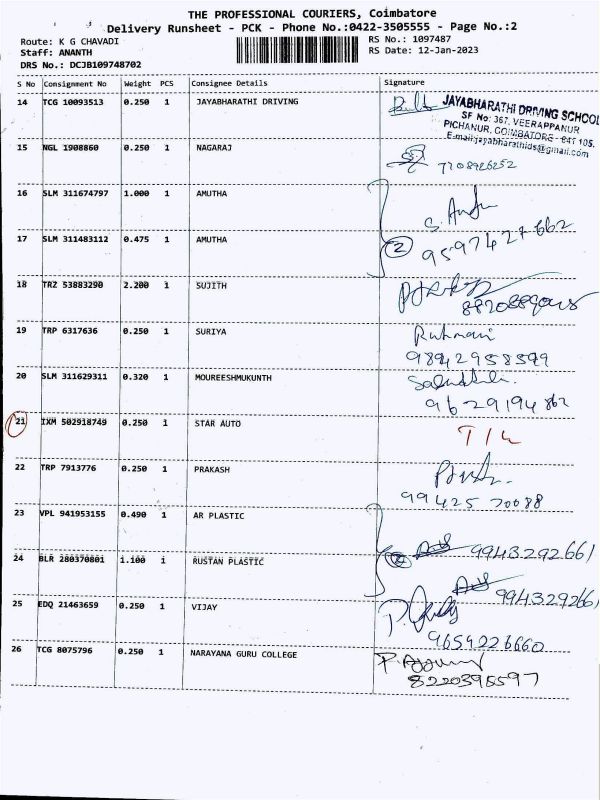 THE PROFESSIONAL COURIERS, Coimbatore
Delivery Runsheet - PCK - Phone No.:0422-3505555 - Page No.:2
Route: K G CHAVADI
RS No.: 1097487
Staff: ANANTH
RS Date: 12-Jan-2023
DRS No.: DCJB109748702
S No Consignment No Weight PCS Consignee Details Signature
14 TCG 10093513 0.250 1 JAYABHARATHI DRIVING
JAYABHARATHI DRIVING SCHOOL
SF No: 367, VEERAPPANUR
PICHANUR, COIMBATORE - 641 105.
E-mail:jayabharathids@gmail.com
15 NGL 1908860 0.250 1 NAGARAJ
7708926252
16 SLM 311674797 1.000 1 AMUTHA
17 SLM 311483112 0.475 1 AMUTHA
2 9597427662
18 TRZ 53883290 2.200 1 SUJITH
19 TRP 6317636 0.250 1 SURIYA
Rukmani
98942958599
20 SLM 311629311 0.320 1 MOUREESHMUKUNTH
9629194862
21 IXM 502918749 0.250 1 STAR AUTO
T/L
22 TRP 7913776 0.250 1 PRAKASH
99425 70088
23 VPL 941953155 0.490 1 AR PLASTIC
24 BLR 280370801 1.100 1 RUSTAN PLASTIC
2 9943292661
9943292661
25 EDQ 21463659 0.250 1 VIJAY
9659226660
26 TCG 8075796 0.250 1 NARAYANA GURU COLLEGE
8220395597